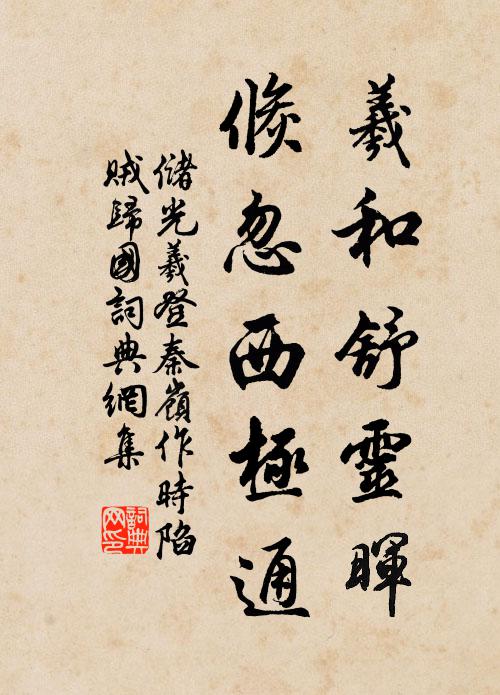 羲和舒靈暉
倏忽西極通
儲光羲登秦嶺作時陷
賊歸國詞典網集
詞典
网印